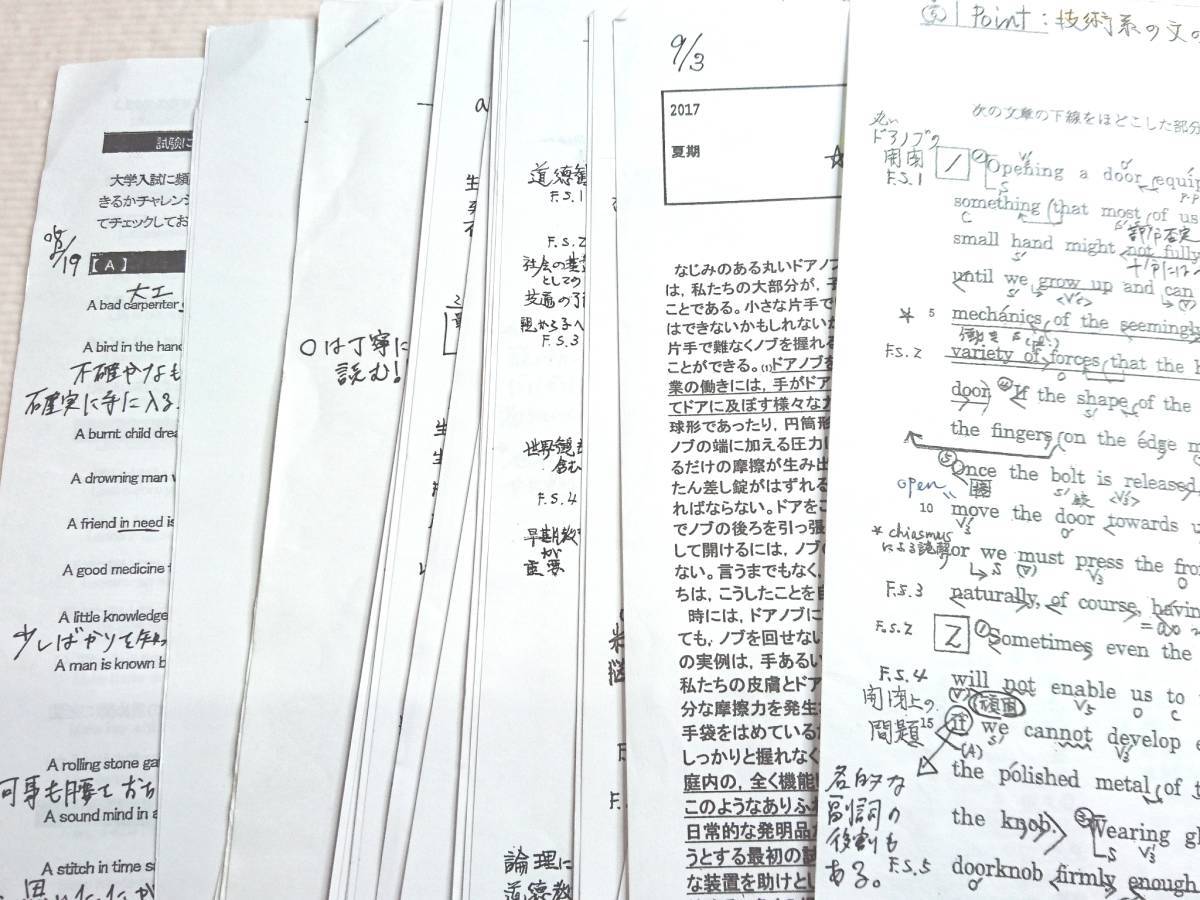 試験に
大学入試に頻
きるかチャレンジ
てチェックしてお
08/19
【A】
大工
A bad carpenter
A bird in the hand
不確かなも
確実に手に入る
A burnt child drea
A drowning man
A friend in need is
A good medicine
A little knowledge
少しばかりを知っ
A man is known b
A rolling stone ga
何事も腰て おち
A sound mind in a
A stitch in time s
〇は丁寧に
読む!
a
生
道徳観
F.S.1
F.S.2
社会の
としての
共通の了
親から子へ
F.S.3
世界観も
含む
F.S.4
早期教
が
重要
論理に
道徳教
9/3
2017
夏期
☆
なじみのある丸いドアノブ
は,私たちの大部分が,子
ことである。小さな片手で
はできないかもしれないが
片手で難なくノブを握れる
ことができる。(1)ドアノブを
業の働きには,手がドア
てドアに及ぼす様々な力
球形であったり,円筒形
ノブの端に加える圧力に
るだけの摩擦が生み出
たん差し錠がはずれる
ればならない。ドアをこ
でノブの後ろを引っ張
して開けるには,ノブの
ない。言うまでもなく,
ちは,こうしたことを自
時には,ドアノブに
ても,ノブを回せない
の実例は,手あるい
私たちの皮膚とドア
分な摩擦力を発生
手袋をはめている
しっかりと握れなく
庭内の,全く機能
このようなありふれ
日常的な発明品
うとする最初の試
な装置を助けとし
⑤ Point: 技術系の文の
次の文章の下線をほどこした部分
丸い
ドアノブの
開閉
F.S.1
1 Opening a door equi
something that most of us
部分否定
small hand might not fully
until we grow up and can
* 5 mechanics of the seemingly
働き
F.S.2 variety of forces that the h
door. If the shape of the
the fingers on the edge m
Once the bolt is released,
open
10 move the door towards u
* chiasmus
による読解
or we must press the fro
F.S.3 naturally, of course, having
F.S.2 2 Sometimes even the
F.S.4 will not enable us to
開閉上の
問題
頑固
15 if we cannot develop e
the polished metal of t
名的な
副詞の
役割も
ある。
the knob. Wearing gl
F.S.5 doorknob firmly enough